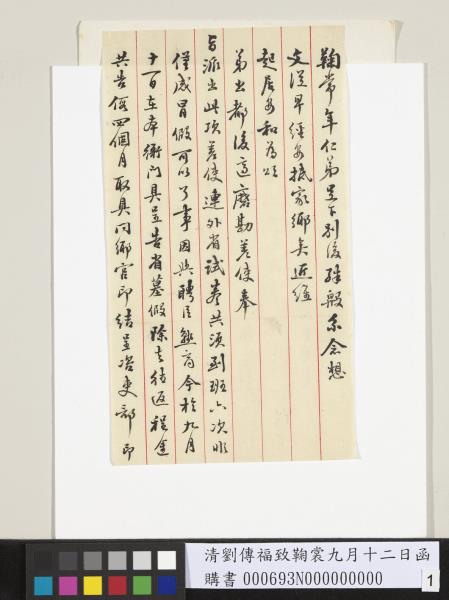 鞠常年仁弟足下別後殊殷系念想
文從早經安抵家鄉矣近維
起居安和為頌
弟出都後適磨勘差使奉
旨派出此項差使連外省試卷共須到班六次
僅咸冒假可以了事因與聘臣熟商今於九月
十一日在本衙門具呈告省墓假除去往返程途
共告假四個月取具同鄉官印結呈咨吏部印
清劉傳福致鞠裳九月十二日函
購書 000693N000000000
1